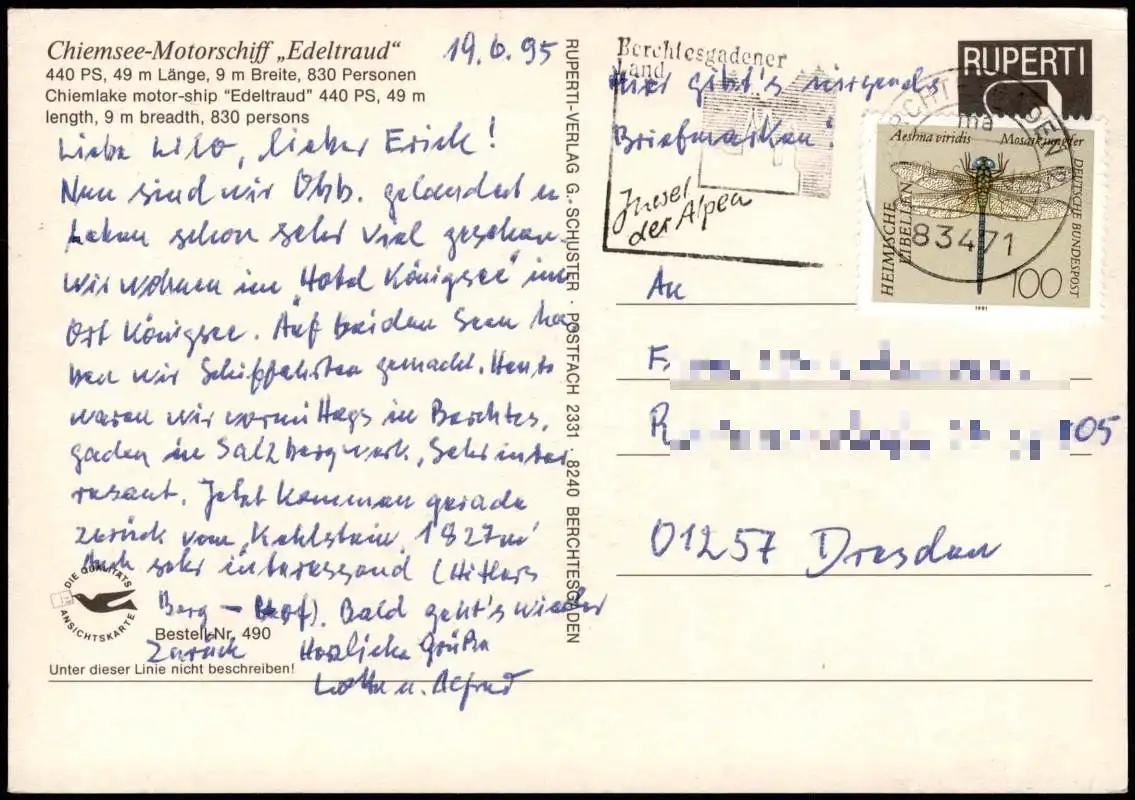 Chiemsee-Motorschiff „Edeltraud“
440 PS, 49 m Länge, 9 m Breite, 830 Personen
Chiemlake motor-ship “Edeltraud” 440 PS, 49 m
length, 9 m breadth, 830 persons
19.6.95
Liebe Lilo, lieber Erich!
Nun sind wir Obb. gelandet u
haben schon sehr viel gesehen.
Wir wohnen im "Hotel Königsee" im
Ort Königsee. Auf beiden Seen ha
ben wir Schiffahrten gemacht. Heute
waren wir vormittags in Berchtes,
gaden in Salzbergwerk, Sehr inter
resant. Jetzt kommen gerade
zurück vom Kehlstein, 1827m
Auch sehr interessand (Hitlers
Berg - Hof). Bald geht's wieder
Zurück Herzliche Grüße
Lotte u. Alfred
DIE QUALITÄTS
ANSICHTSKARTE
Bestell-Nr. 490
Unter dieser Linie nicht beschreiben!
RUPERTI-VERLAG G. SCHUSTER · POSTFACH 2331 · 8240 BERCHTESGADEN
Berchtesgadener
Land
Hier gibt's nirgends
Briefmarken!
Juwel
der Alpen
RUPERTI
Aeshna viridis Mosaikjungfer
HEIMISCHE
LIBELLEN
DEUTSCHE BUNDESPOST
100
1991
83471
An
F
R 05
01257 Dresden